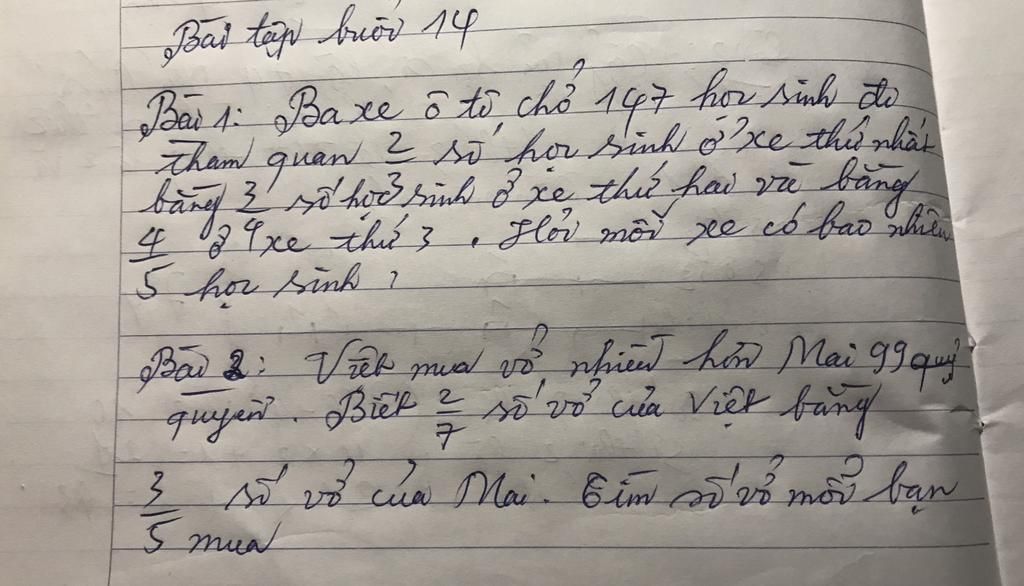 Bài tập buổi 14
Bài 1: Ba xe ô tô chở 147 học sinh đi
tham quan 2/3 số học sinh ở xe thứ nhất
bằng 3/4 số học sinh ở xe thứ hai và bằng
4/5 ở xe thứ 3. Hỏi mỗi xe có bao nhiêu
học sinh ?
Bài 2: Việt mua vở nhiều hơn Mai 99 quy
quyển. Biết 2/7 số vở của Việt bằng
3/5 số vở của Mai. Tìm số vở mỗi bạn
mua